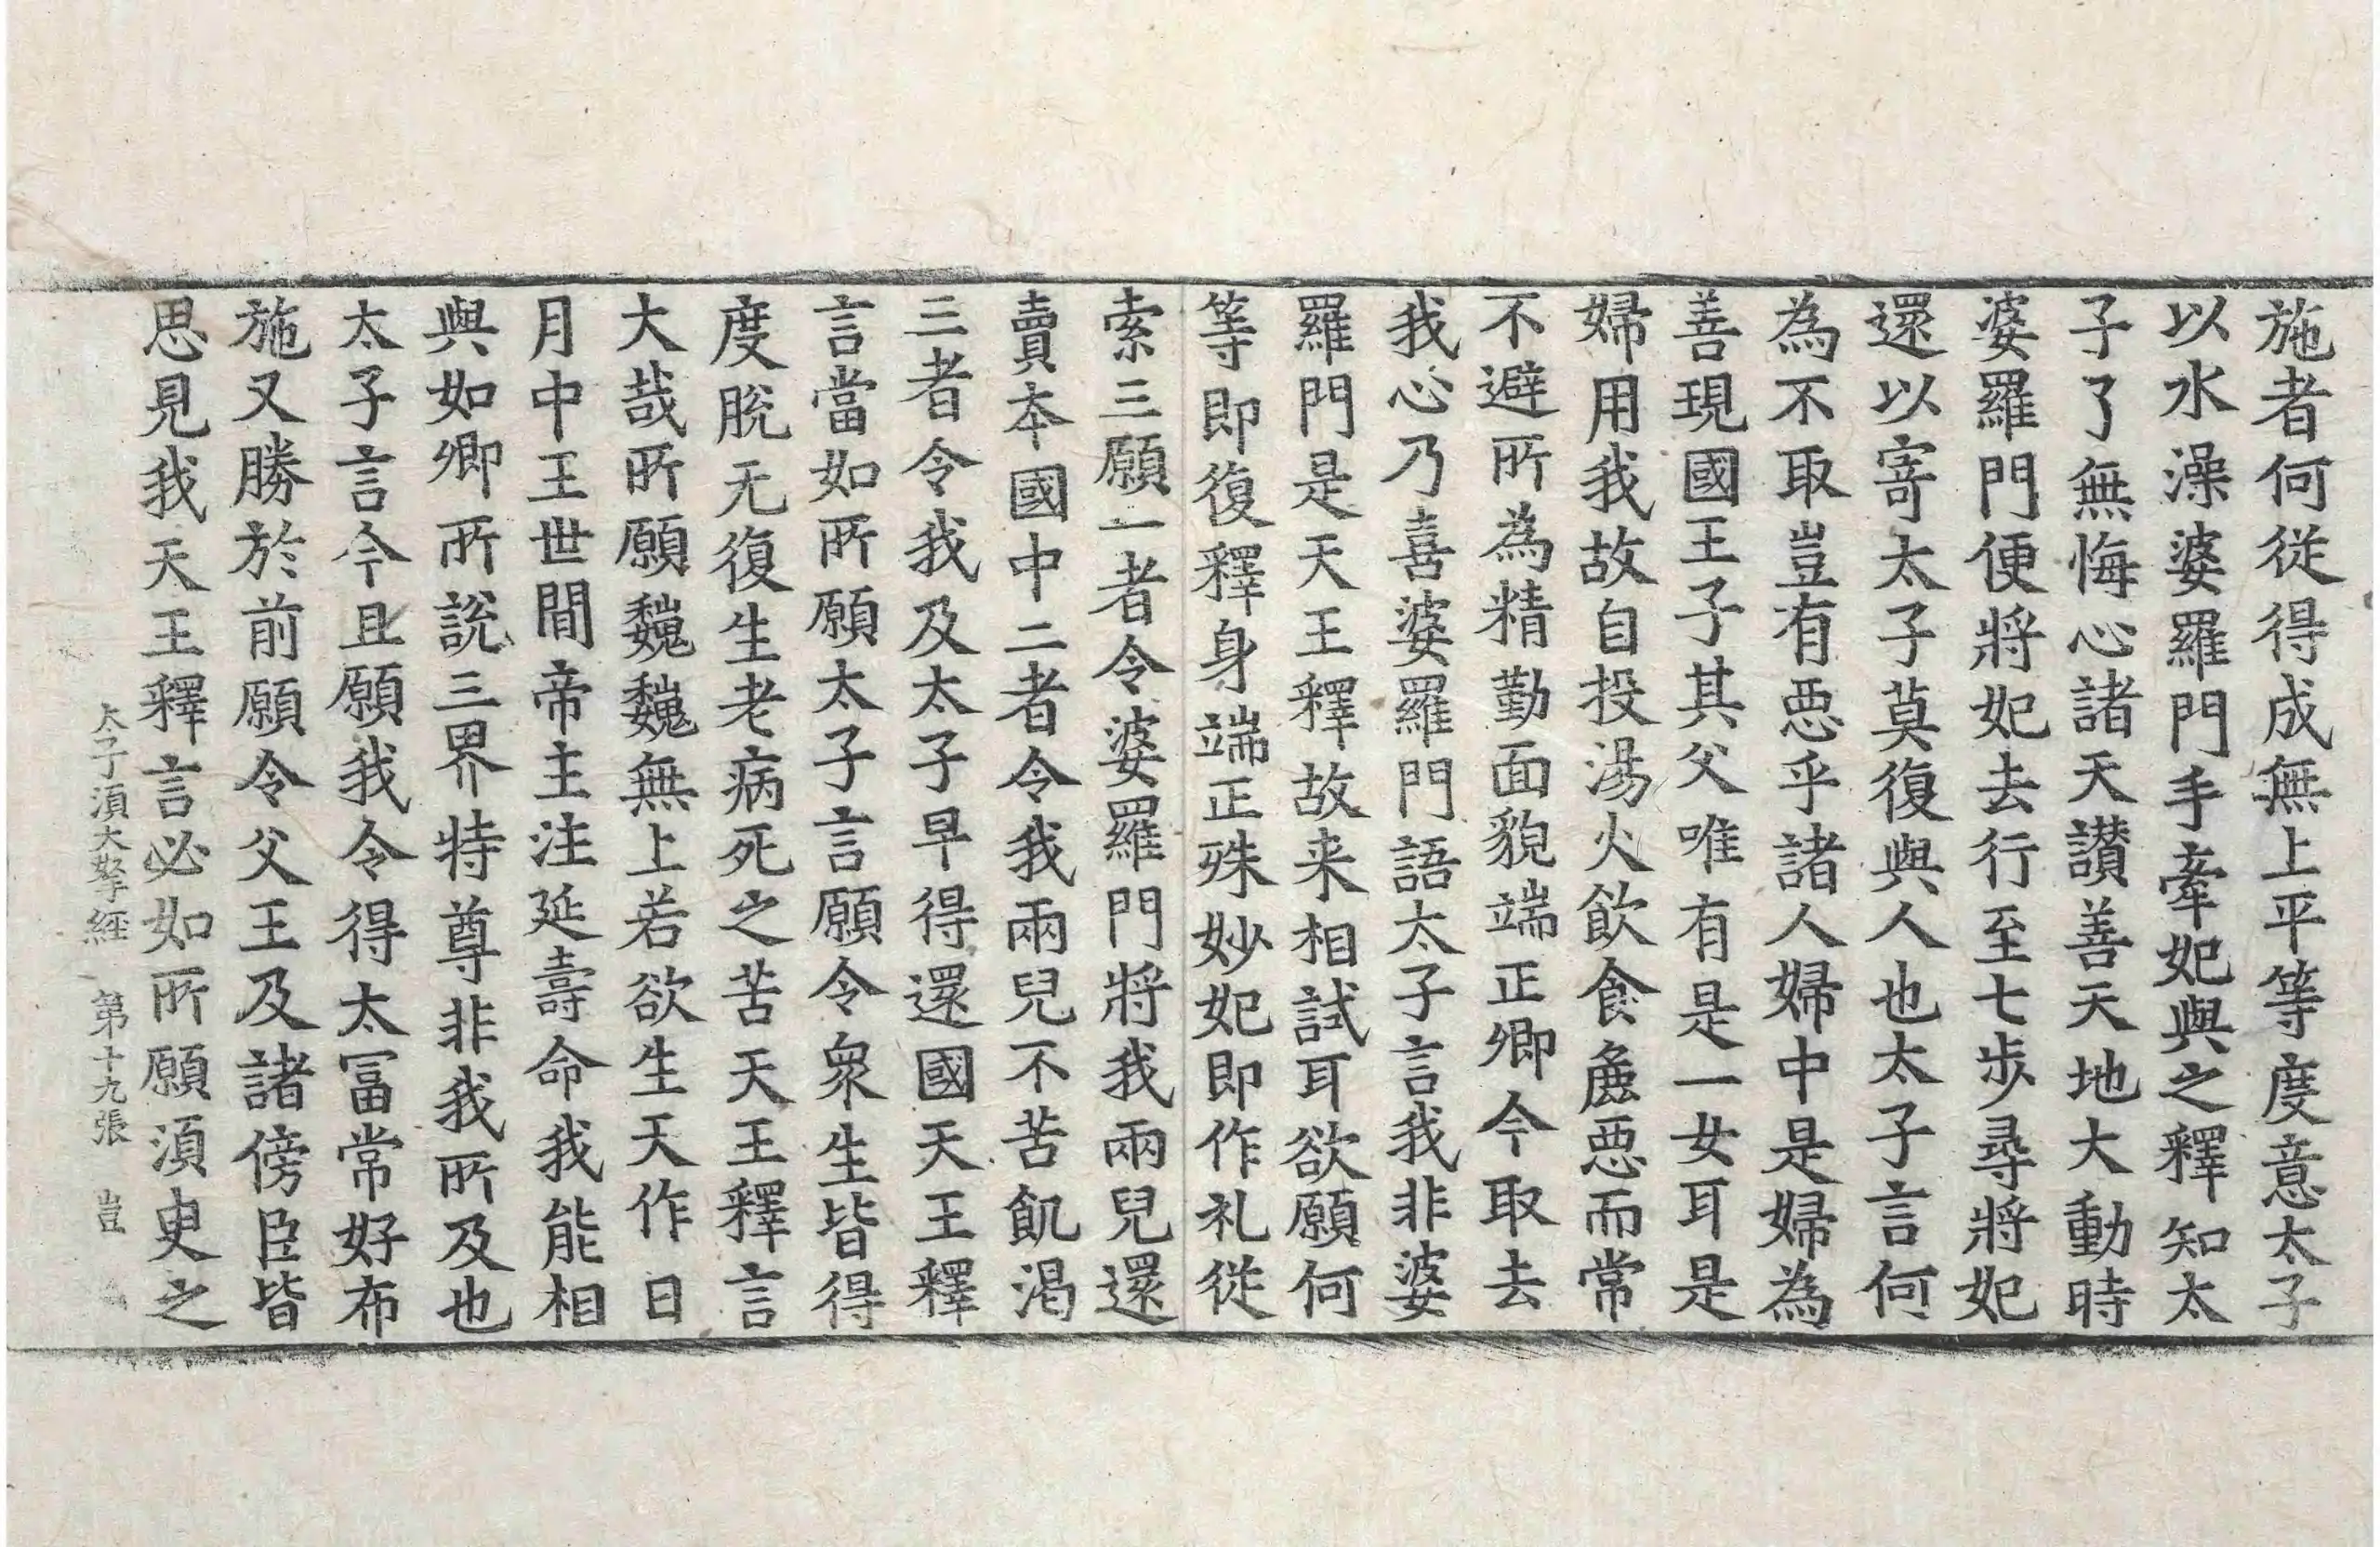 施者何從得成無上平等度意太子
以水澡婆羅門手牽妃與之釋知太
子了無悔心諸天讃善天地大動時
婆羅門便將妃去行至七步尋將妃
還以寄太子莫復與人也太子言何
為不取豈有惡乎諸人婦中是婦為
善現國王子其父唯有是一女耳是
婦用我故自投湯火飲食麁惡而常
不避所為精勤面貌端正卿今取去
我心乃喜婆羅門語太子言我非婆
羅門是天王釋故来相試耳欲願何
等即復釋身端正殊妙妃即作礼從
索三願一者令婆羅門將我兩兒還
賣本國中二者令我兩兒不苦飢渴
三者令我及太子早得還國天王釋
言當如所願太子言願令衆生皆得
度脫无復生老病死之苦天王釋言
大哉所願巍巍無上若欲生天作日
月中王世間帝主注延壽命我能相
與如卿所說三界特尊非我所及也
太子言今且願我令得太冨常好布
施又勝於前願令父王及諸傍臣皆
思見我天王釋言必如所願湏臾之
太子湏大拏經　第十九張　豈